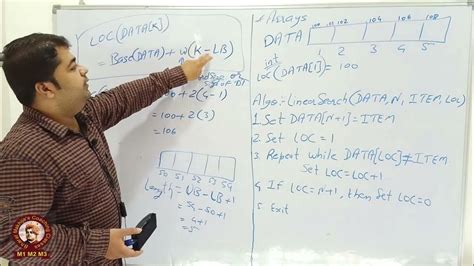 LOC(DATA[K]
= Base(DATA) + w(K - LB)
100 + 2(4-1)
= 100 + 2(3)
= 106
50 51 52 53 54
Length = UB - LB + 1
= 54 - 50 + 1
= 4+1
= 5
Arrays
DATA
100 102 104 106 108
1 2 3 4 5
int
LOC(DATA[1]) = 100
Algo:- LinearSearch(DATA, N, ITEM, LOC)
1. Set DATA[N+1] = ITEM
2. Set LOC = 1
3. Repeat while DATA[LOC] ≠ ITEM
Set LOC = LOC + 1
4. If LOC = N+1, then Set LOC = 0
5. Exit
M1 M2 M3